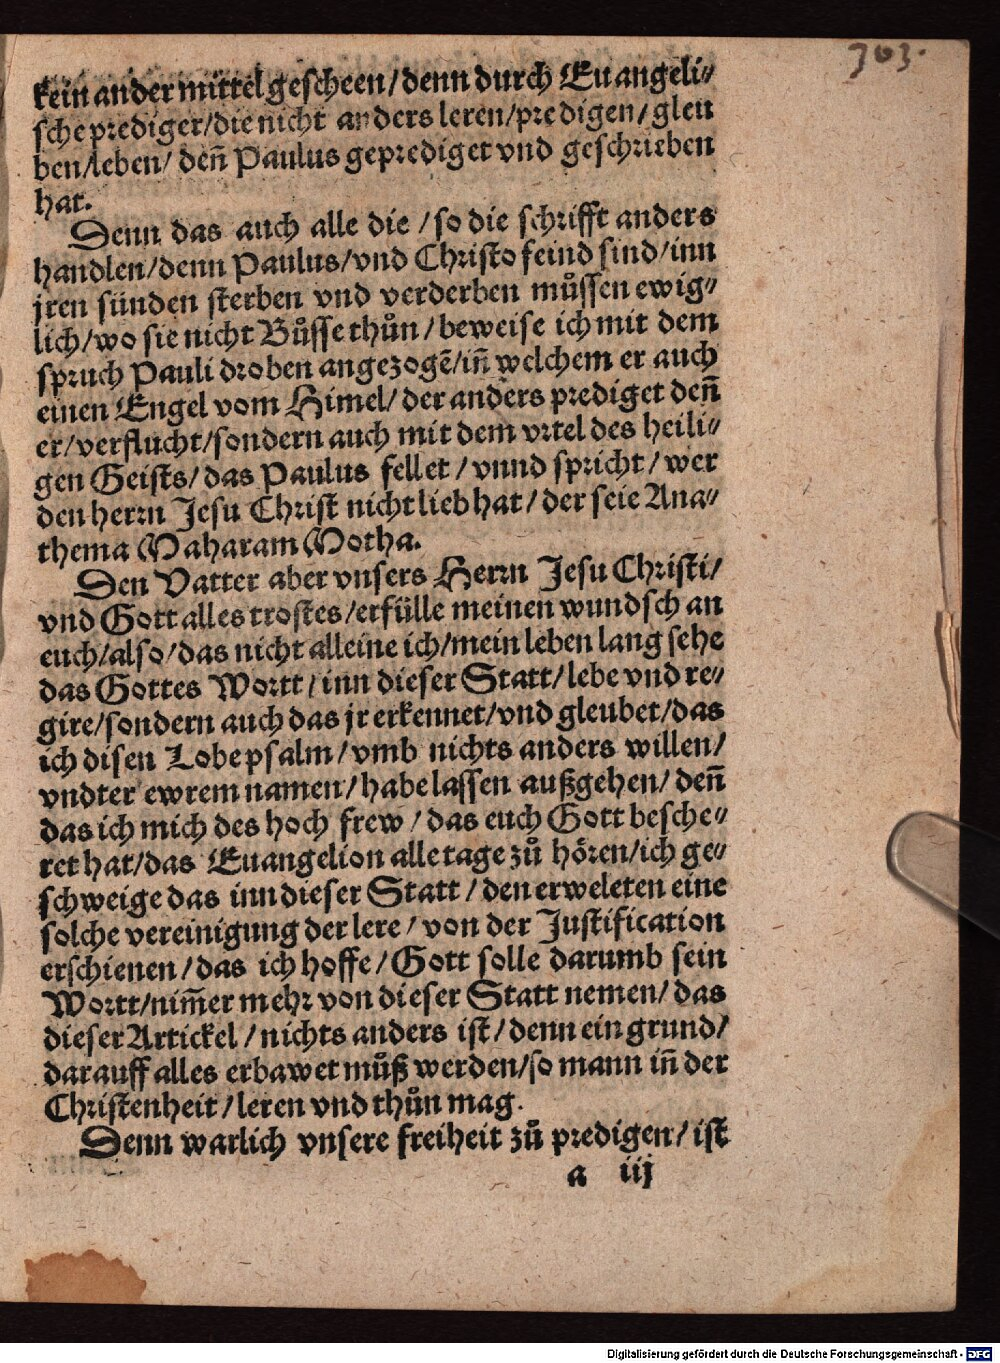 303.
kein ander mittel gescheen/denn durch Euangeli⸗
sche prediger/die nicht anders leren/predigen/gleu
ben/leben/ deñ Paulus geprediget vnd geschrieben
hat.
Denn das auch alle die /so die schrifft anders
handlen/denn Paulus/vnd Christo feind sind/inn
jren sünden sterben vnd verderben müssen ewig⸗
lich/wo sie nicht Bůsse thůn/beweise ich mit dem
spruch Pauli droben angezogẽ/iñ welchem er auch
einen Engel vom Himel/ der anders prediget deñ
er/verflucht/sondern auch mit dem vrtel des heili⸗
gen Geists/das Paulus fellet/vnnd spricht/wer
den herrn Jesu Christ nicht lieb hat/der seie Ana⸗
thema Maharam Motha.
Den Vatter aber vnsers Herrn Jesu Christi/
vnd Gott alles trostes/erfülle meinen wundsch an
euch/also/das nicht alleine ich/mein leben lang sehe
das Gottes Wortt/inn dieser Statt/lebe vnd re⸗
gire/sondern auch das jr erkennet/vnd gleubet/das
ich disen Lobepsalm/vmb nichts anders willen/
vndter ewrem namen/habe lassen außgehen/deñ
das ich mich des hoch frew/das euch Gott besche⸗
ret hat/das Euangelion alle tage zů hören/ich ge⸗
schweige das inn dieser Statt/den erweleten eine
solche vereinigung der lere/von der Justification
erschienen/das ich hoffe/Gott solle darumb sein
Wortt/nim̃er mehr von dieser Statt nemen/das
dieser Artickel/nichts anders ist/denn ein grund/
darauff alles erbawet můß werden/so mann iñ der
Christenheit/leren vnd thůn mag.
Denn warlich vnsere freiheit zů predigen/ist
a iij
Digitalisierung gefördert durch die Deutsche Forschungsgemeinschaft - DFG